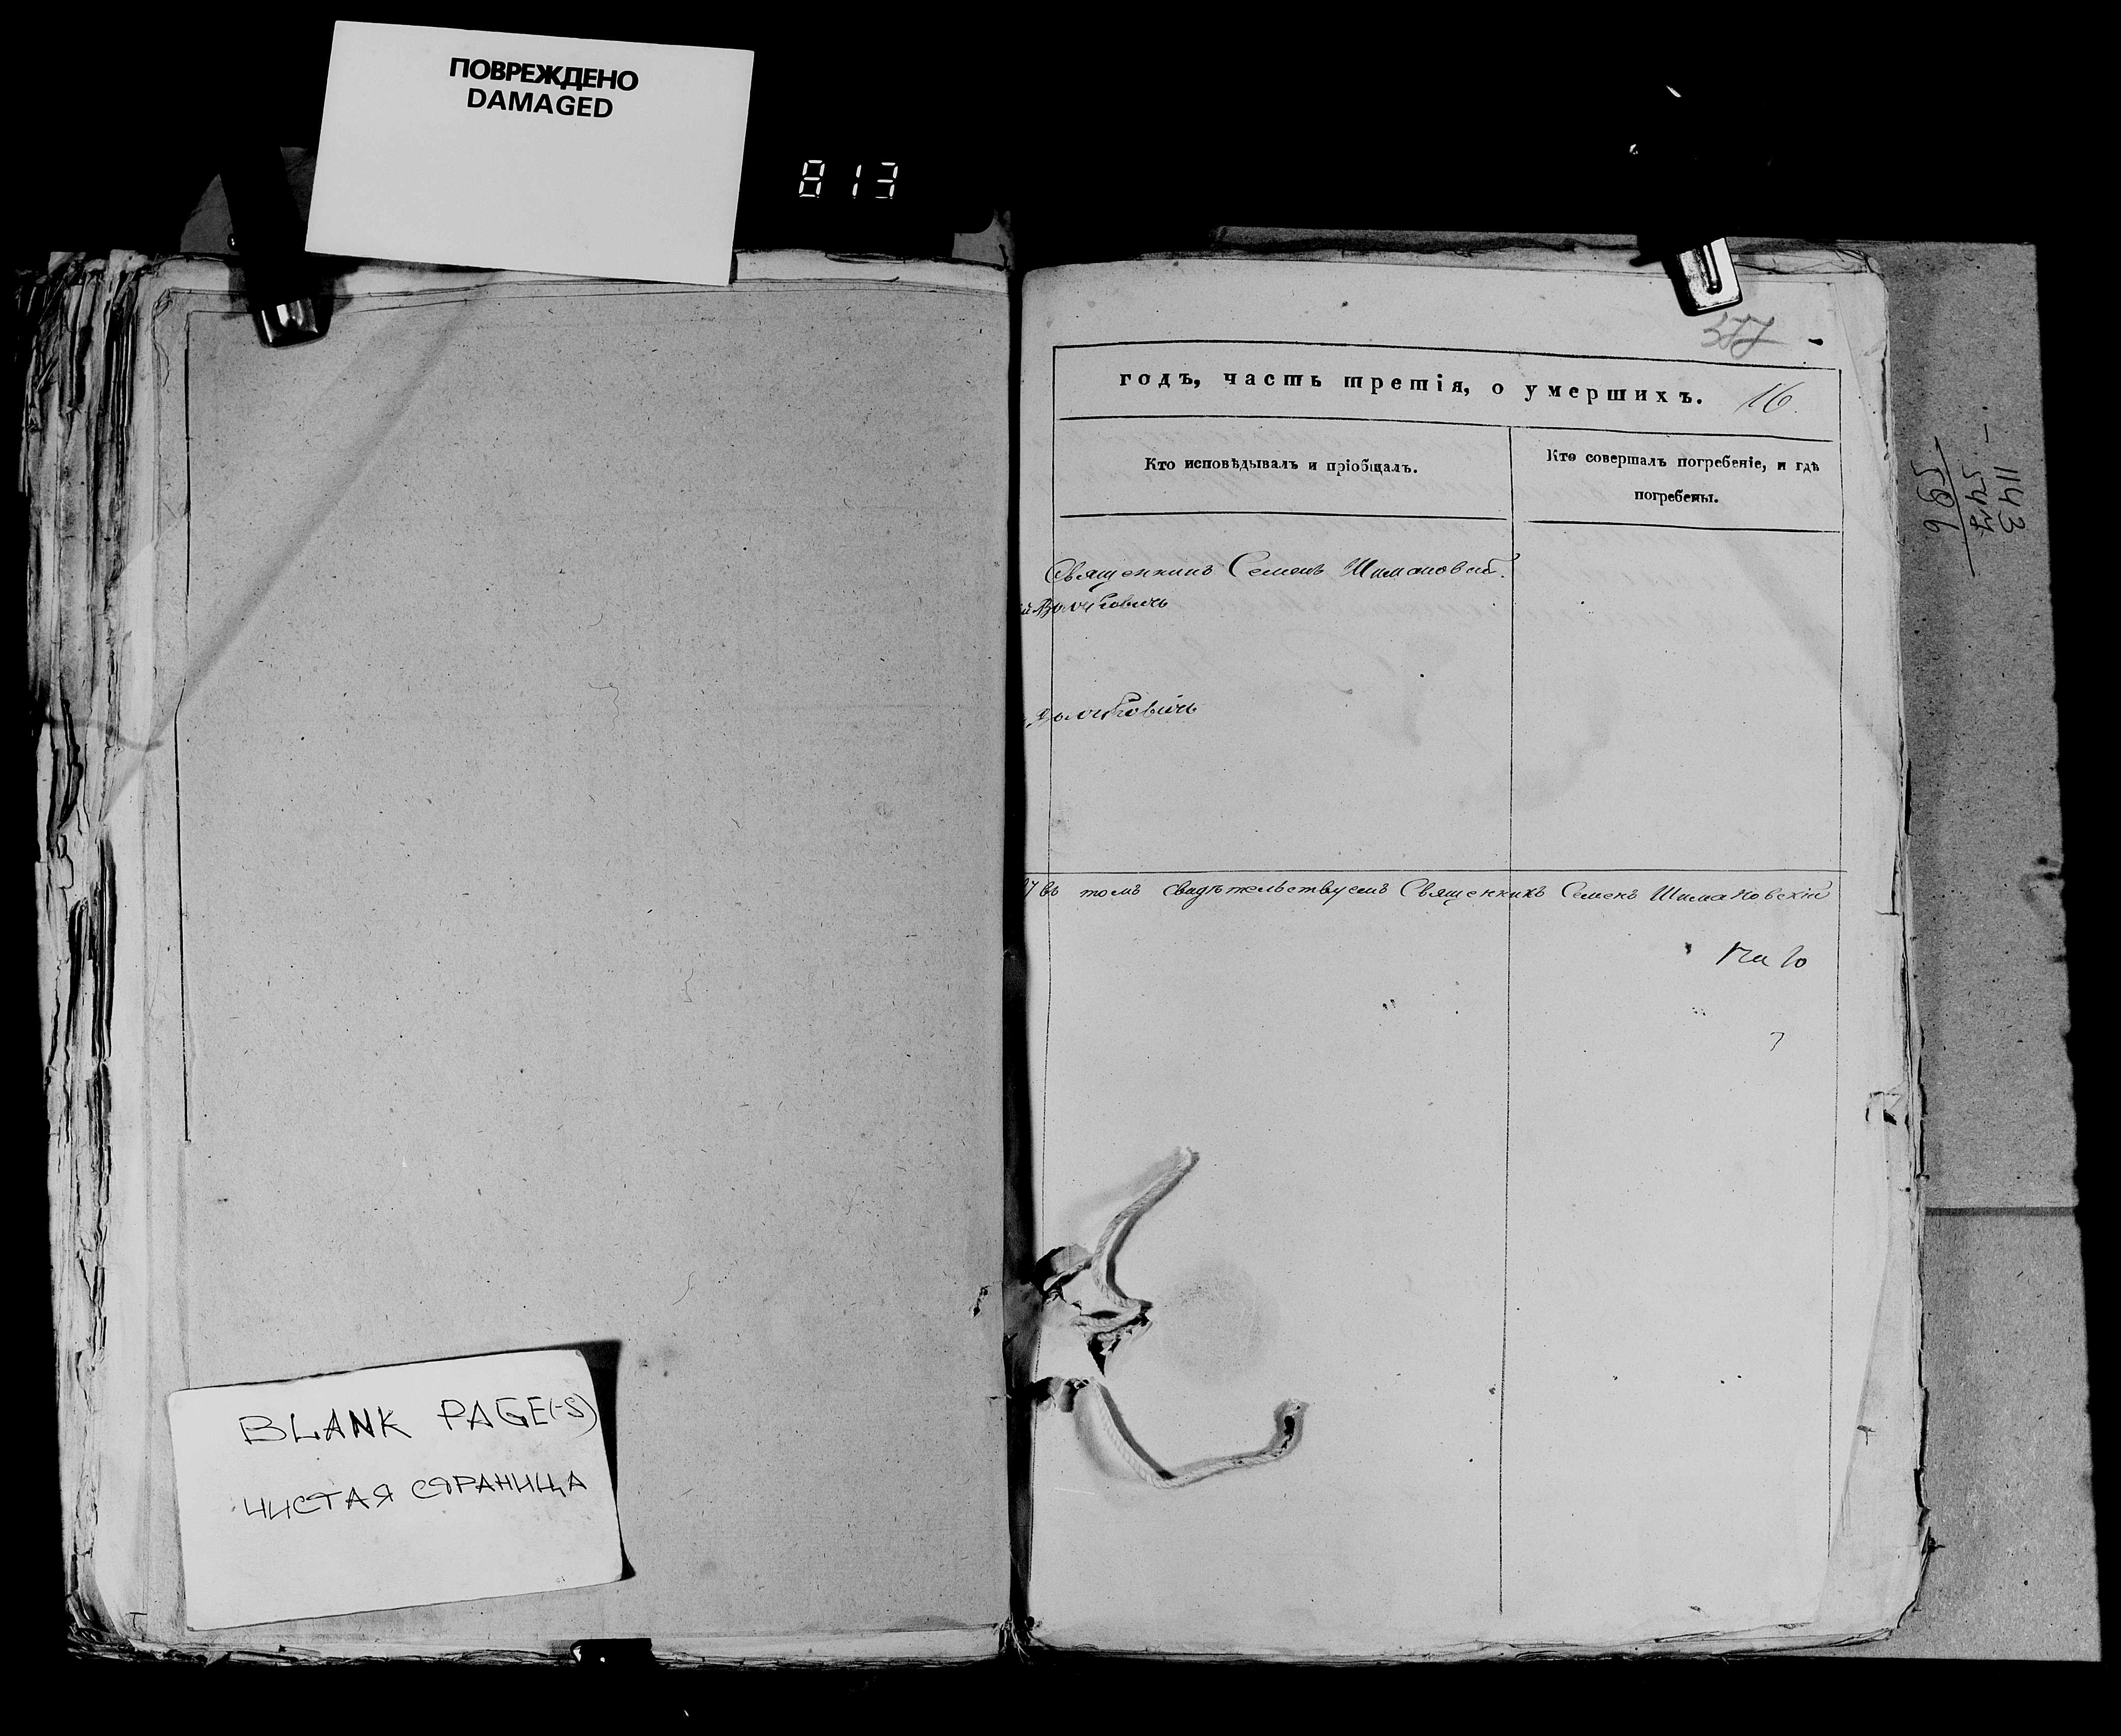 ПОВРЕЖДЕНО
DAMAGED
813
377
годъ, часть третія, о умершихъ. 16.
Кто исповѣдывалъ и пріобщалъ.
Кто совершалъ погребеніе, и гдѣ
погребены.
Священникъ Семенъ Шимановскій.
въ томъ свидѣтельствуемъ Священникъ Семенъ Шимановскій
1143
547
596
BLANK PAGE(-S)
ЧИСТАЯ СТРАНИЦА